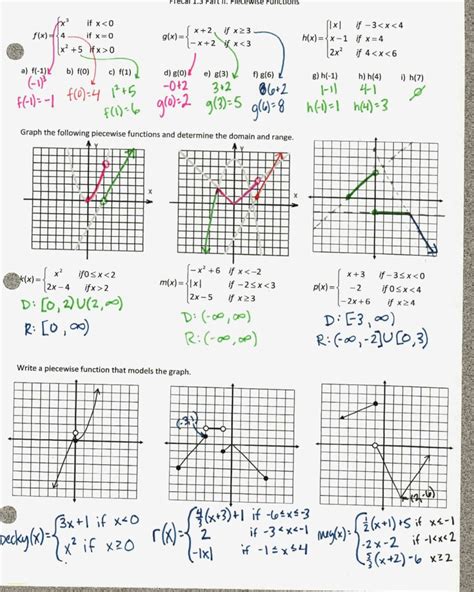 Precal 1.3 Part II: Piecewise Functions
f(x)= { x³ if x<0
4 if x=0
x²+5 if x>0
g(x)= { x+2, if x≥3
-x+2 if x<3
h(x)= { |x| if -3<x<4
x-1 if x=4
2x² if 4<x<6
a) f(-1) b) f(0) c) f(1) d) g(0) e) g(3) f) g(6) g) h(-1) h) h(4) i) h(7)
(-1)³ f(0)=4 1²+5 -0+2 3+2 6+2 |-1| 4-1 ∅
f(-1)=-1 f(1)=6 g(0)=2 g(3)=5 g(6)=8 h(-1)=1 h(4)=3
Graph the following piecewise functions and determine the domain and range.
y y
x x
k(x)= { x² if 0≤x<2
2x-4 if x>2
m(x)= { -x²+6 if x<-2
|x| if -2≤x<3
2x-5 if x≥3
p(x)= { x+3 if -3≤x<0
-2 if 0≤x<4
-2x+6 if x≥4
D: [0,2)∪(2,∞)
R: [0,∞)
D: (-∞,∞)
R: (-∞,∞)
D: [-3,∞)
R: (-∞,-2]∪[0,3)
Write a piecewise function that models the graph.
(2,-6)
becky(x)= { 3x+1 if x<0
x² if x≥0
r(x)= { 4/3(x+3)+1 if -6≤x≤-3
2 if -3<x<-1
-|x| if -1≤x≤4
meg(x)= { 1/2(x+1)+5 if x<-1
-2x-2 if -1<x<2
5/3(x+2)-6 x≥2